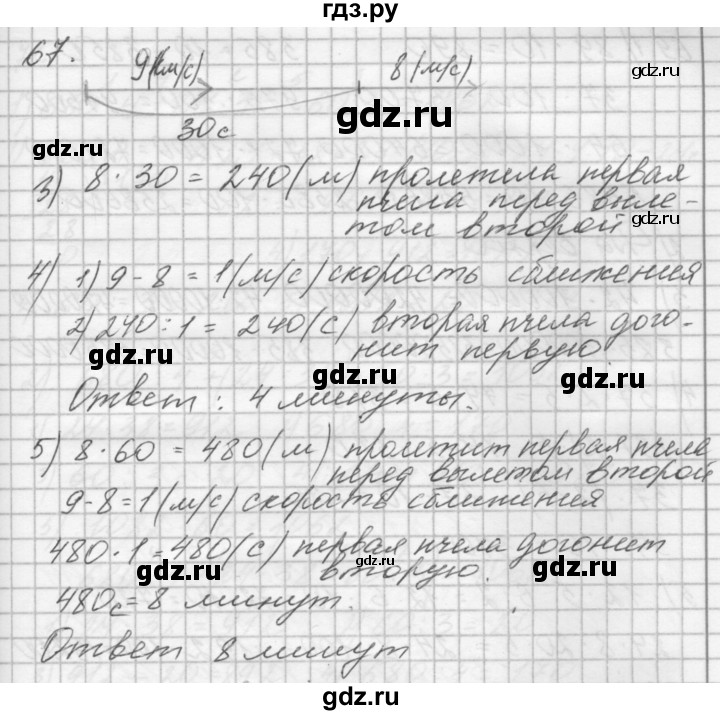 гдз.ру
67.
9(км/с)
8(м/с)
gdz.ru
gdz.ru
30с
3) 8·30=240(м) пролетела первая
пчела перед выле-
gdz.ru
том второй
gdz.ru
4) 1) 9-8=1(м/с) скорость сближения
2) 240:1=240(с) вторая пчела дого-
нит первую.
gdz.ru
gdz.ru
gdz.ru
Ответ: 4 минуты.
5) 8·60=480(м) пролетит первая пчела
перед вылетом второй
gdz.ru
9-8=1(м/с) скорость сближения
480·1=480(с) первая пчела догонит
вторую.
gdz.ru
gdz.ru
480с=8 минут.
Ответ 8 минут
gdz.ru
gdz.ru
gdz.ru